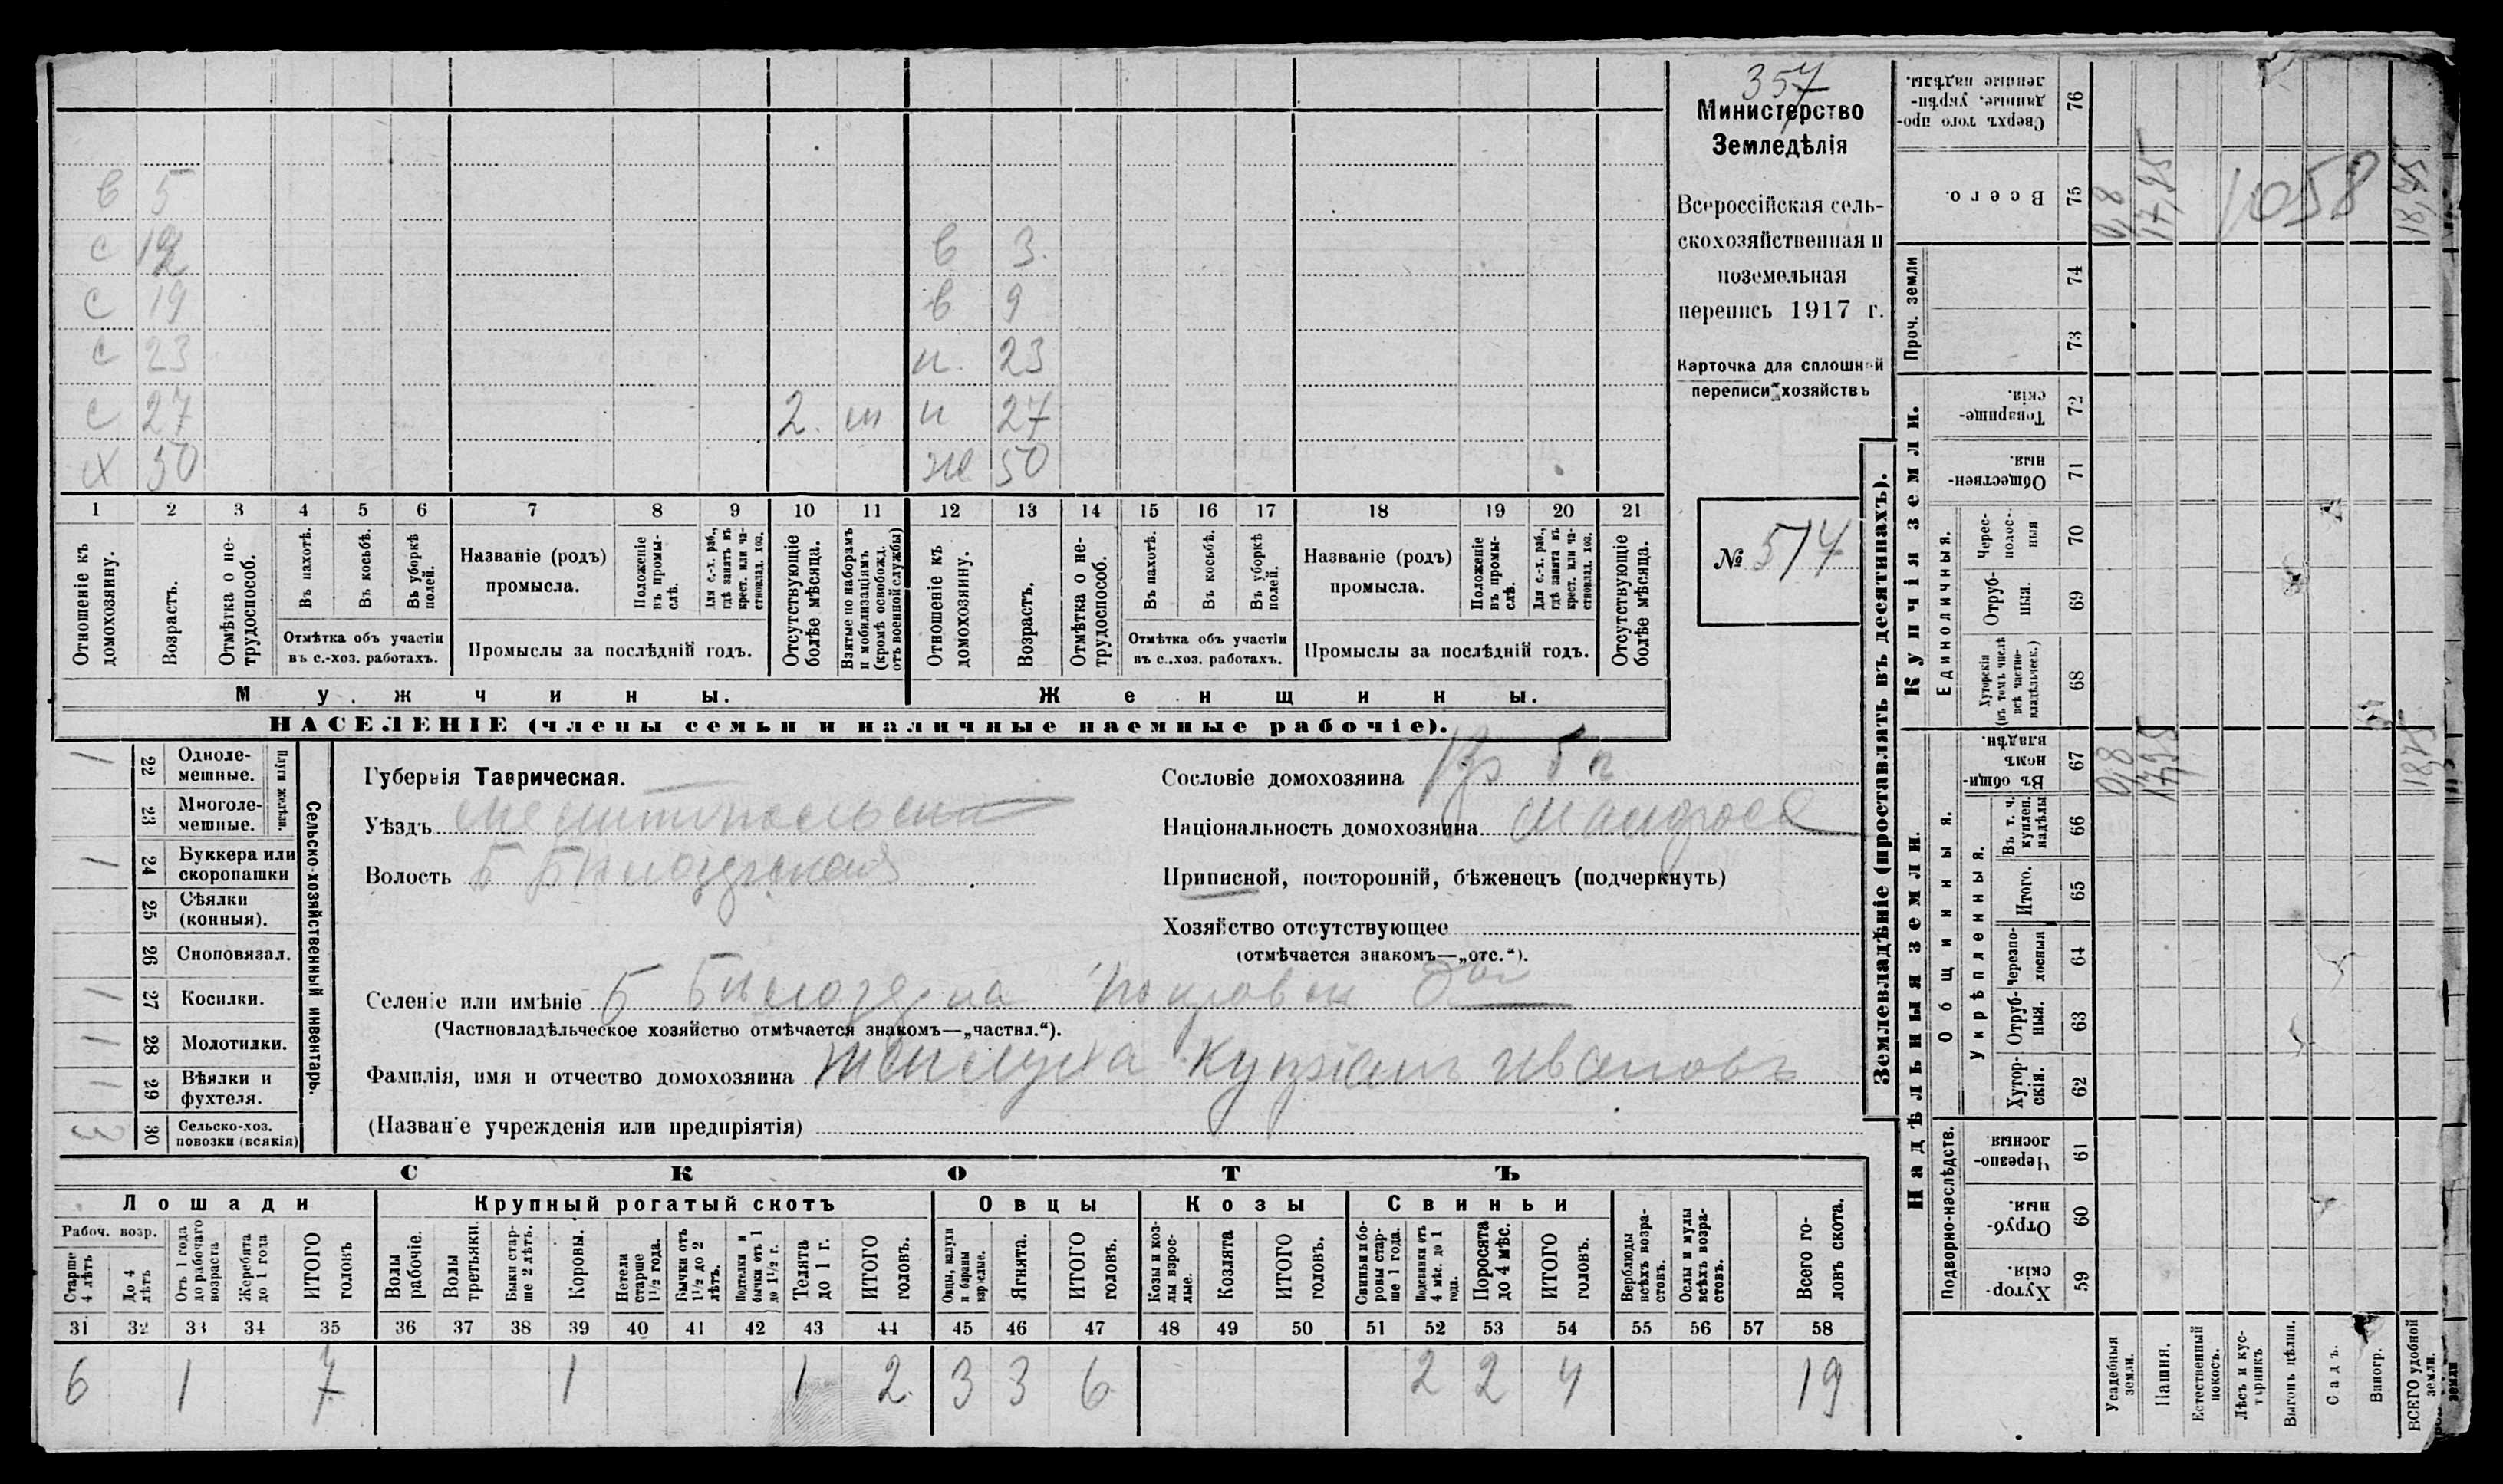 357
Министерство
Земледѣлія
Всероссійская сель-
скохозяйственная и
поземельная
перепись 1917 г.
Карточка для сплошной
переписи хозяйствъ
№ 514
в 5
с 12 в 3.
с 19 в 9
с 23 н. 23
с 27 2. н 27
х 50 же 50
1 2 3 4 5 6 7 8 9 10 11 12 13 14 15 16 17 18 19 20 21
Отношеніе къ домохозяину.
Возрастъ.
Отмѣтка о не-трудоспособ.
Въ пахотѣ.
Въ косьбѣ.
Въ уборкѣ полей.
Отмѣтка объ участіи
въ с.-хоз. работахъ.
Названіе (родъ)
промысла.
Положеніе въ промы-слѣ.
Для с.-х. раб., гдѣ занятъ въ крест. или ча-стновлад. хоз.
Промыслы за послѣдній годъ.
Отсутствующіе болѣе мѣсяца.
Взятые по наборамъ и мобилизаціямъ (кромѣ освобожд. отъ военной службы)
Отношеніе къ домохозяину.
Возрастъ.
Отмѣтка о не-трудоспособ.
Въ пахотѣ.
Въ косьбѣ.
Въ уборкѣ полей.
Отмѣтка объ участіи
въ с.-хоз. работахъ.
Названіе (родъ)
промысла.
Положеніе въ промы-слѣ.
Для с.-х. раб., гдѣ занята въ крест. или ча-стновлад. хоз.
Промыслы за послѣдній годъ.
Отсутствующіе болѣе мѣсяца.
Мужчины. Женщины.
НАСЕЛЕНІЕ (члены семьи и наличные наемные рабочіе).
Сельско-хозяйственный инвентарь.
Плуги желѣзн.
1 22 Одноле-мешные.
23 Многоле-мешные.
1 24 Буккера или скоропашки
25 Сѣялки (конныя).
26 Сноповязал.
1 27 Косилки.
1 28 Молотилки.
1 29 Вѣялки и фухтеля.
3 30 Сельско-хоз. повозки (всякія)
Губернія Таврическая.
Уѣздъ Мелитопольскій
Волость Б Бѣлозерская
Сословіе домохозяина
Національность домохозяина Малоросс
Приписной, посторонній, бѣженецъ (подчеркнуть)
Хозяйство отсутствующее
(отмѣчается знакомъ—„отс.“).
Селеніе или имѣніе Б Бѣлозерка
(Частновладѣльческое хозяйство отмѣчается знакомъ—„частвл.“).
Фамилія, имя и отчество домохозяина Купріанъ Ивановъ
(Названіе учрежденія или предпріятія)
СКОТЪ
Лошади Крупный рогатый скотъ Овцы Козы Свиньи
Рабоч. возр.
Старше 4 лѣтъ
До 4 лѣтъ
Отъ 1 года до рабочаго возраста
Жеребята до 1 года
ИТОГО головъ
Волы рабочіе.
Волы третьяки.
Быки стар-ше 2 лѣтъ.
Коровы.
Нетели старше 1½ года.
Бычки отъ 1½ до 2 лѣтъ.
Подтелки и бычки отъ 1 до 1½ г.
Телята до 1 г.
ИТОГО головъ.
Овцы, валухи и бараны взрослые.
Ягнята.
ИТОГО головъ.
Козы и коз-лы взрос-лые.
Козлята
ИТОГО головъ.
Свиньи и бо-ровы стар-ше 1 года.
Подсвинки отъ 4 мѣс. до 1 года.
Поросята до 4 мѣс.
ИТОГО головъ.
Верблюды всѣхъ возра-стовъ.
Ослы и мулы всѣхъ возра-стовъ.
Всего го-ловъ скота.
31 32 33 34 35 36 37 38 39 40 41 42 43 44 45 46 47 48 49 50 51 52 53 54 55 56 57 58
6 1 7 1 1 2 3 3 6 2 2 4 19
Землевладѣніе (проставлять въ десятинахъ).
Купчія земли.
Надѣльныя земли.
Сверхъ того про-данные, укрѣп-ленные надѣлы. 76
Всего. 75 0,8 17,45 1058 18,25
Проч. земли 74 73
Товарище-скія. 72
Обществен-ныя. 71
Единоличныя.
Черес-полос-ныя 70
Отруб-ныя. 69
Хуторскія (въ томъ числѣ всѣ частно-владѣльческ.) 68
Общинныя.
Въ общи-номъ владѣн. 67 0,8 17,45 18,25
Укрѣпленныя.
Въ т. ч. куплен. надѣлы 66
Итого. 65
Черезпо-лосныя 64
Отруб-ныя. 63
Хутор-скія. 62
Подворно-наслѣдств.
Черезпо-лосныя 61
Отруб-ныя. 60
Хутор-скія. 59
Усадебныя земли.
Пашня.
Естественный покосъ.
Лѣсъ и кус-тарникъ
Выгонъ цѣлин.
Садъ.
Виногр.
ВСЕГО удобной земли.